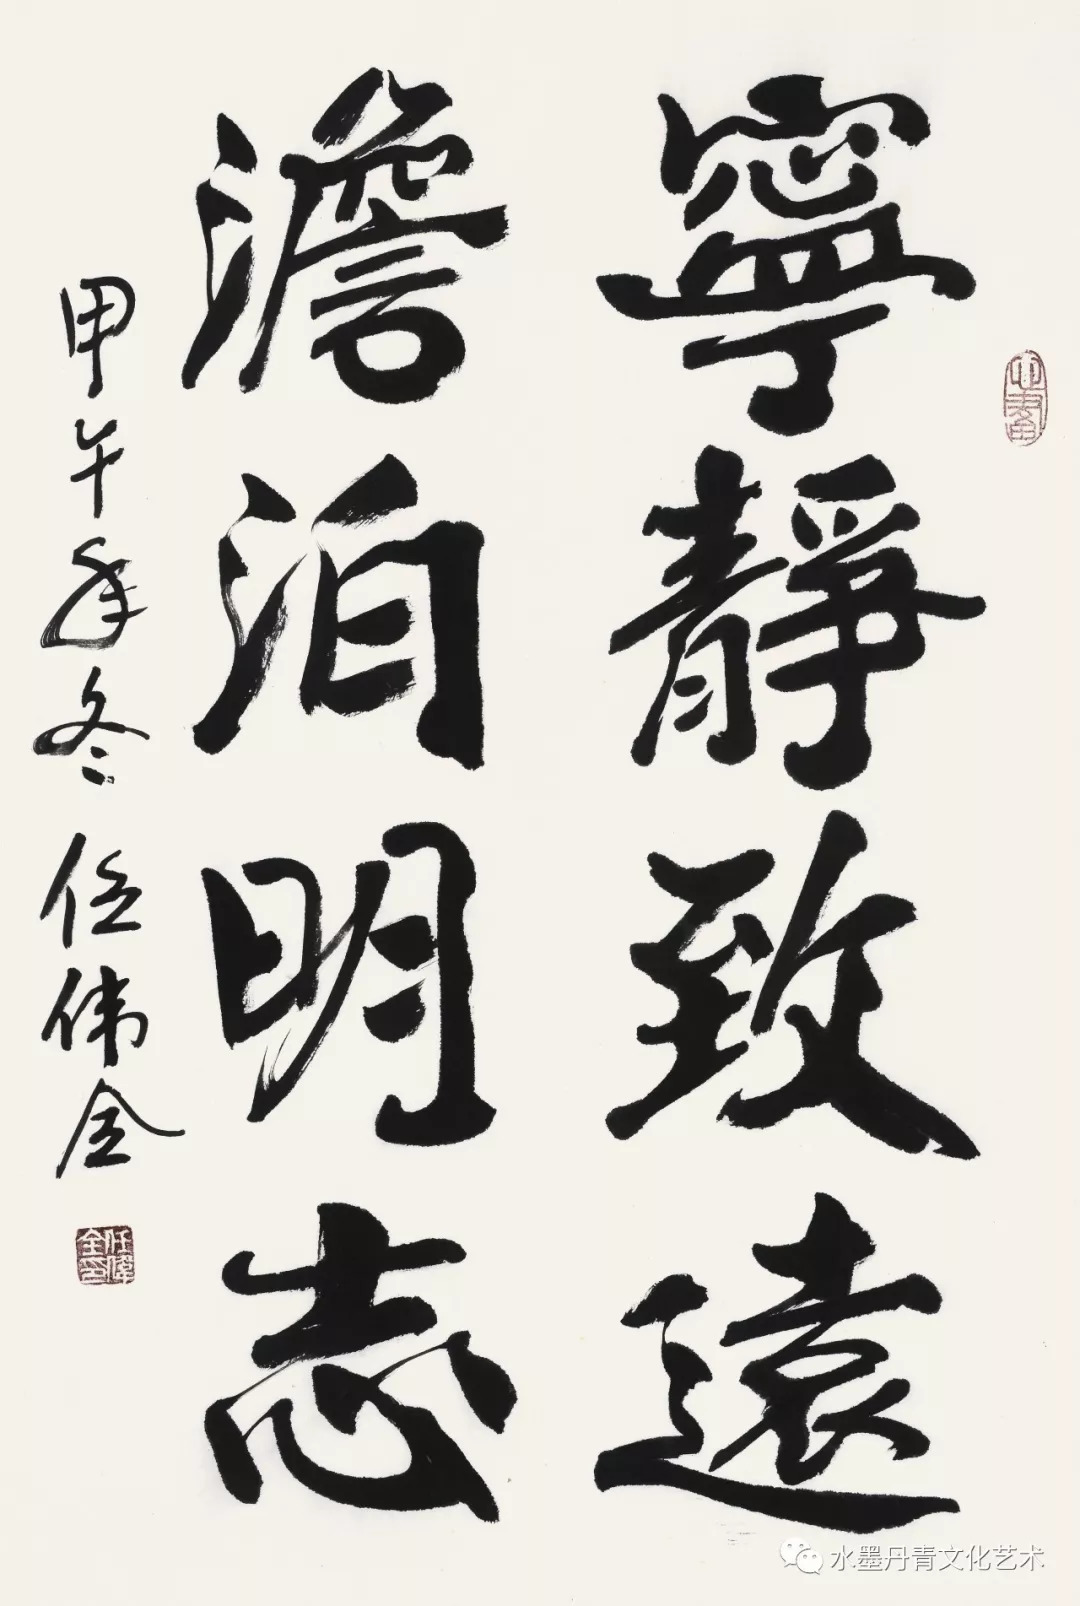 寧靜致遠
澹泊明志
甲午年冬任伟全
任偉全印
水墨丹青文化艺术